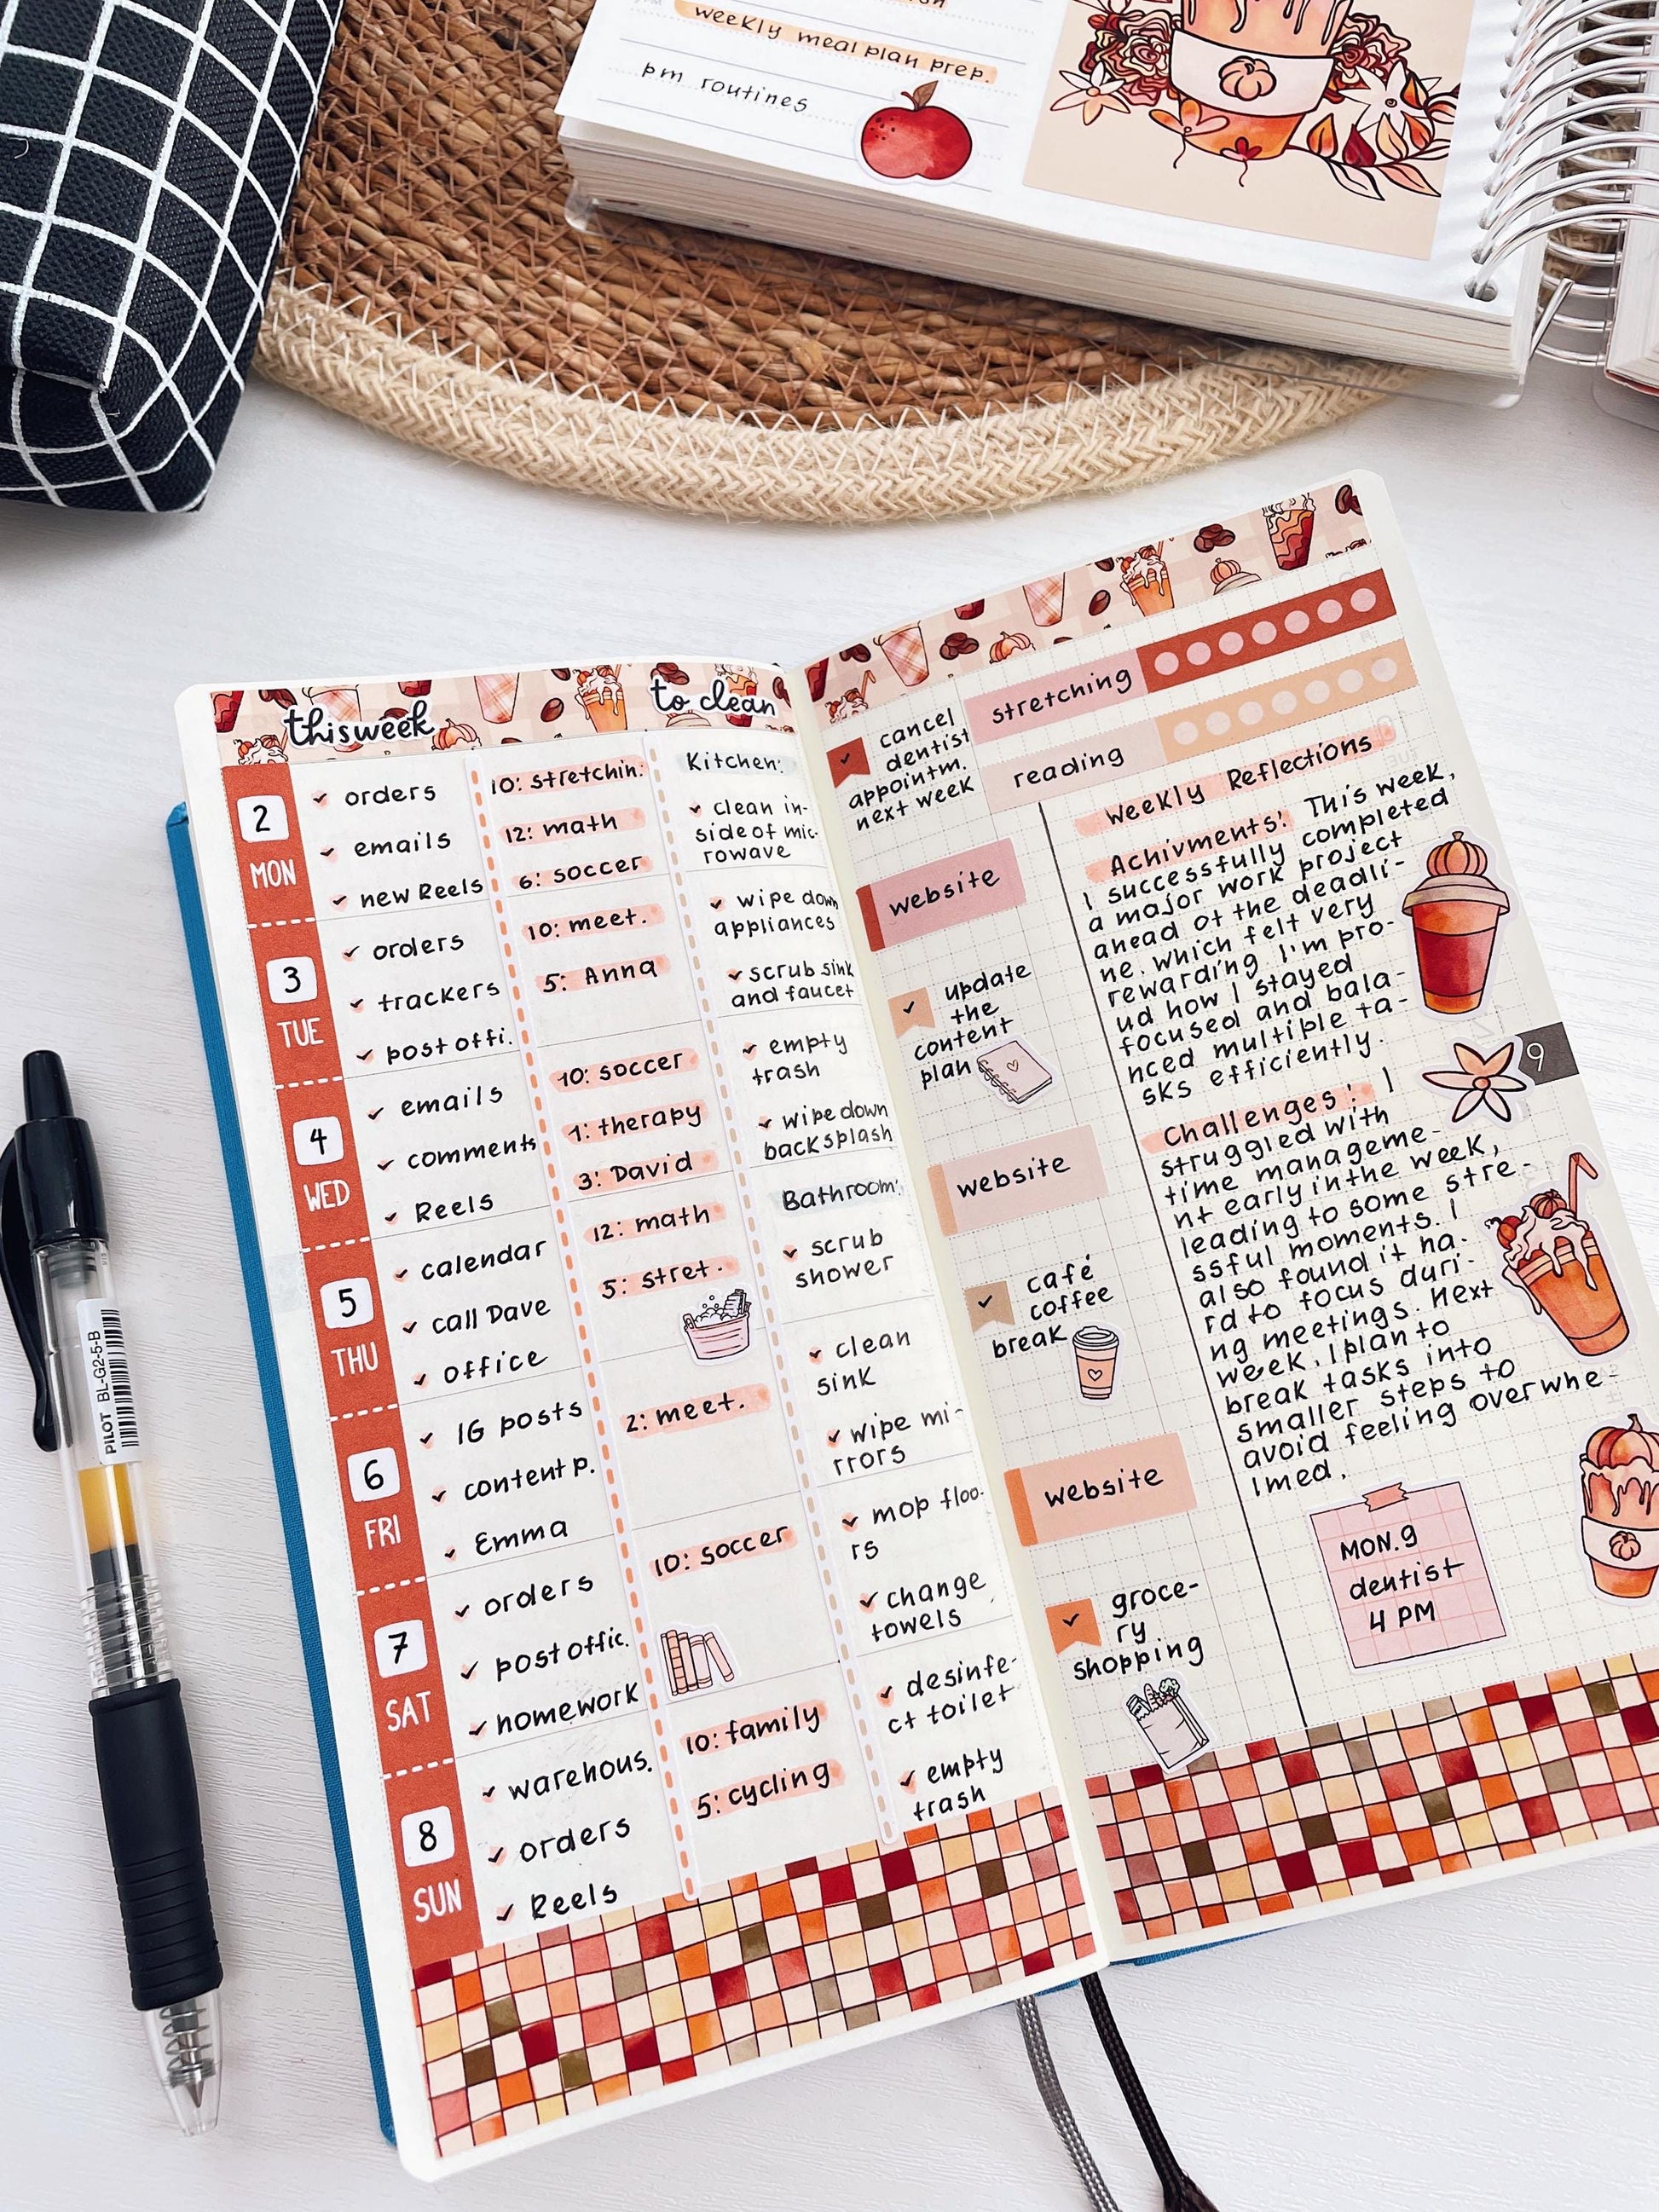 weekly meal plan prep.
pm routines
this week
to clean
2
MON
✓ orders
✓ emails
✓ new Reels
3
TUE
✓ orders
✓ trackers
✓ post offi.
4
WED
✓ emails
✓ comments
✓ Reels
5
THU
✓ calendar
✓ call Dave
✓ office
6
FRI
✓ IG posts
✓ content p.
✓ Emma
7
SAT
✓ orders
✓ post offic.
✓ homework
8
SUN
✓ warehous.
✓ orders
✓ Reels
10: stretchin.
12: math
6: soccer
10: meet.
5: Anna
10: soccer
1: therapy
3: David
12: math
5: stret.
2: meet.
10: soccer
10: family
5: cycling
Kitchen:
✓ clean in-
side of mic-
rowave
✓ wipe down
appliances
✓ scrub sink
and faucet
✓ empty
trash
✓ wipe down
backsplash
Bathroom:
✓ scrub
shower
✓ clean
sink
✓ wipe mi-
rrors
✓ mop floo-
rs
✓ change
towels
✓ desinfe-
ct toilet
✓ empty
trash
✓ cancel
dentist
appointm.
next week
website
✓ update
the
content
plan
website
✓ café
coffee
break
website
✓ groce-
ry
shopping
stretching
reading
Weekly Reflections
Achivments: This week,
I successfully completed
a major work project
ahead of the deadli-
ne. which felt very
rewarding. I'm pro-
ud how I stayed
focused and bala-
nced multiple ta-
sks efficiently.
Challenges: I
struggled with
time manageme-
nt early in the week,
leading to some stre-
ssful moments. I
also found it ha-
rd to focus duri-
ng meetings. Next
week, I plan to
break tasks into
smaller steps to
avoid feeling overwhe-
lmed.
MON.9
dentist
4 PM
9
PILOT BL-G2-5-B